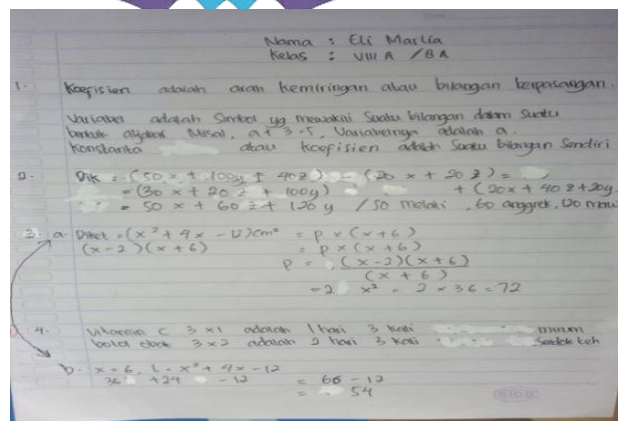 Nama : Eli Marlia
Kelas : VIII A / 8A
1. Koefisien adalah arah kemiringan atau bilangan berpasangan.
Variabel adalah Simbol yg mewakili Suatu bilangan dalam Suatu
bentuk aljabar Misal, a + 3 = 5, Variabelnya adalah a.
Konstanta atau koefisien adalah Suatu bilangan Sendiri
2. Dik : (50 x + 100y + 40z) - (20 x + 20 z) =
= (30 x + 20 z + 100y) + (20x + 40 z + 20y
= 50 x + 60 z + 120 y / 50 melati, 60 anggrek, 120 mawar
3. a. Diket = (x² + 4x - 12) cm² = p × (x + 6)
(x - 2)(x + 6) = p × (x + 6)
p = (x - 2)(x + 6)
(x + 6)
= 2 x² = 2 × 36 = 72
4. Vitamin C 3 x 1 adalah 1 hari 3 kali minum
3 x 2 adalah 2 hari 3 kali Sendok teh
b. x = 6. L = x² + 4x - 12
36 + 24 - 12 = 66 - 12
= 54